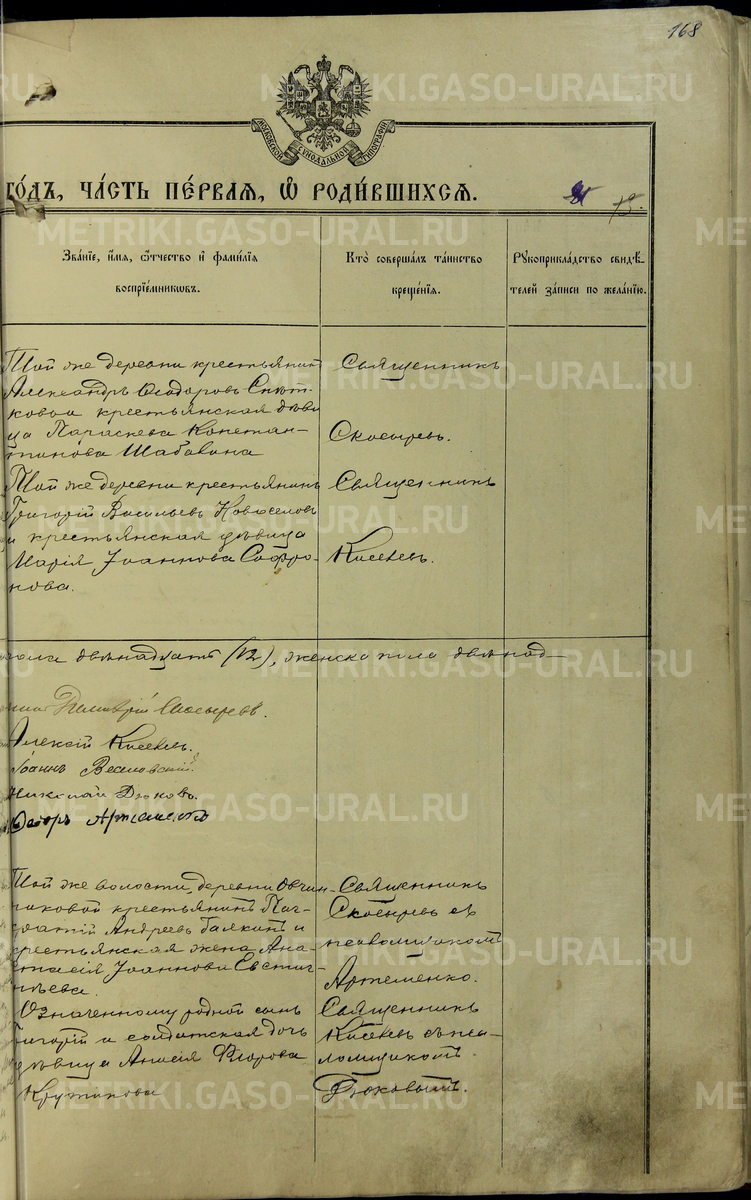 168
МОСКОВСКОЙ СѴНОДАЛЬНОЙ ТИПОГРАФІИ
ГО́ДЪ, ЧА́СТЬ ПЕ́РВАЯ, Ѡ҆ РОДИ́ВШИХСЯ.
Зва́нїе, и҆́мя, ѻ҆́тчество и҆ фами́лїя
воспрїе́мникωвъ.
Кто̀ соверша́лъ та́инство
креще́нїя.
Рꙋкоприкла́дство свидѣ́-
телей за́писи по жела́нїю.
Той же деревни крестьянинъ
Александръ Ѳеодоровъ
крестьянская дѣви
ца Параскева Констан-
тинова Шабалина
Священникъ
Скосыревъ.
Той же деревни крестьянинъ
Григорій Васильевъ Новоселовъ
и крестьянская дѣвица
Марія Іоаннова Софро-
нова.
Священникъ
Киселевъ.
пола двѣнадцать (12), женска пола двѣнад-
Димитрій Скосыревъ.
Алексій Киселевъ.
Іоаннъ
Николай Дюковъ.
Ѳеодоръ Артеменко
Той же волости, деревни Овчин-
никовой крестьянинъ Пан-
кратій Андреевъ Галкинъ и
крестьянская жена Ана-
стасія Іоаннова Евстиг-
нѣева.
Священникъ
Скосыревъ съ
псаломщикомъ
Артеменко.
Означенному родной сынъ
Григорій и солдатская дочь
дѣвица Анисія Егорова
Крутикова
Священникъ
Киселевъ съ пса-
ломщикомъ
Дюковымъ.
METRIKI.GASO-URAL.RU